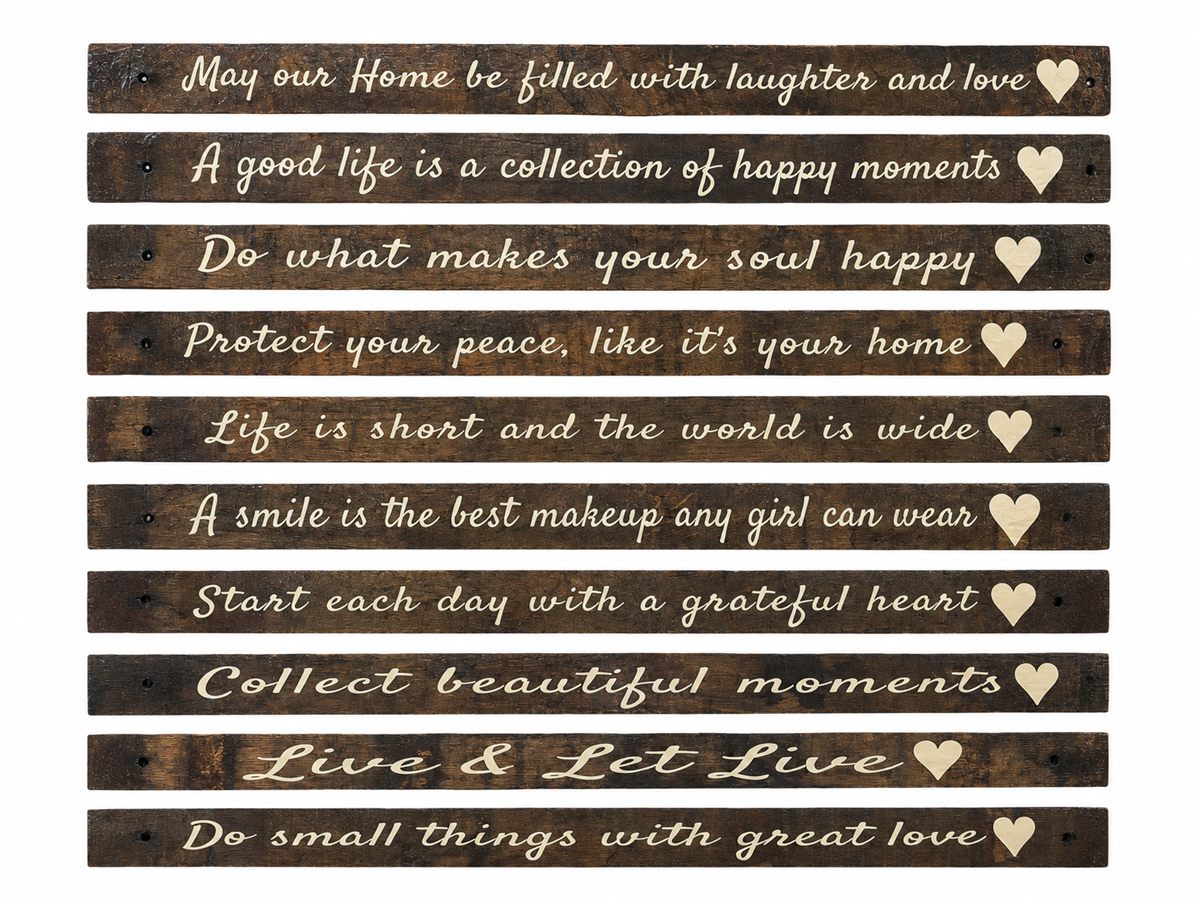 May our Home be filled with laughter and love
A good life is a collection of happy moments
Do what makes your soul happy
Protect your peace, like it's your home
Life is short and the world is wide
A smile is the best makeup any girl can wear
Start each day with a grateful heart
Collect beautiful moments
Live & Let Live
Do small things with great love